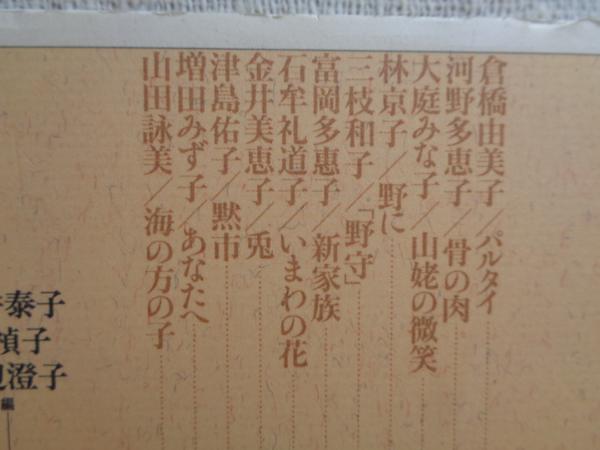 倉橋由美子／パルタイ
河野多惠子／骨の肉
大庭みな子／山姥の微笑
林京子／野に
三枝和子／「野守」
富岡多惠子／新家族
石牟礼道子／いまわの花
金井美恵子／兎
津島佑子／黙市
増田みず子／あなたへ
山田詠美／海の方の子
泰子
禎子
澄子
編